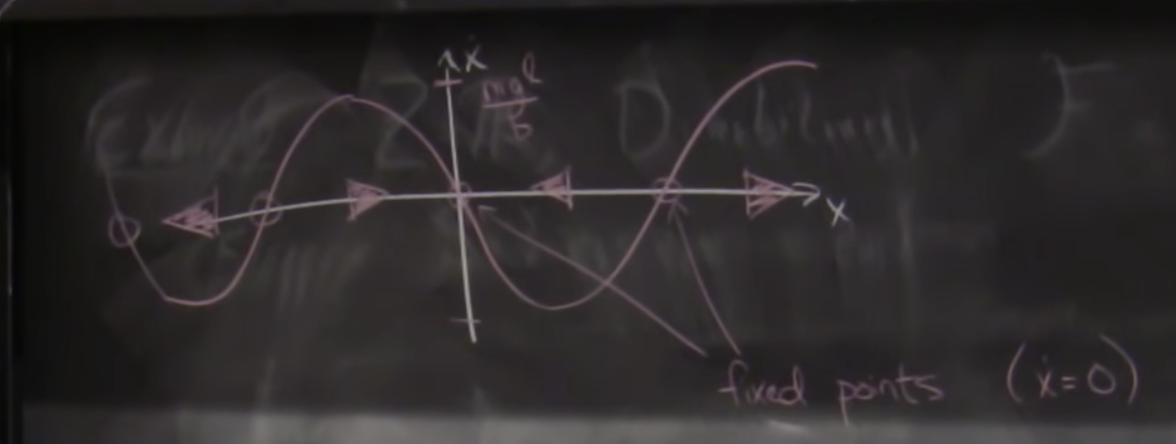 ẋ
mgl
b
x
fixed points (ẋ=0)